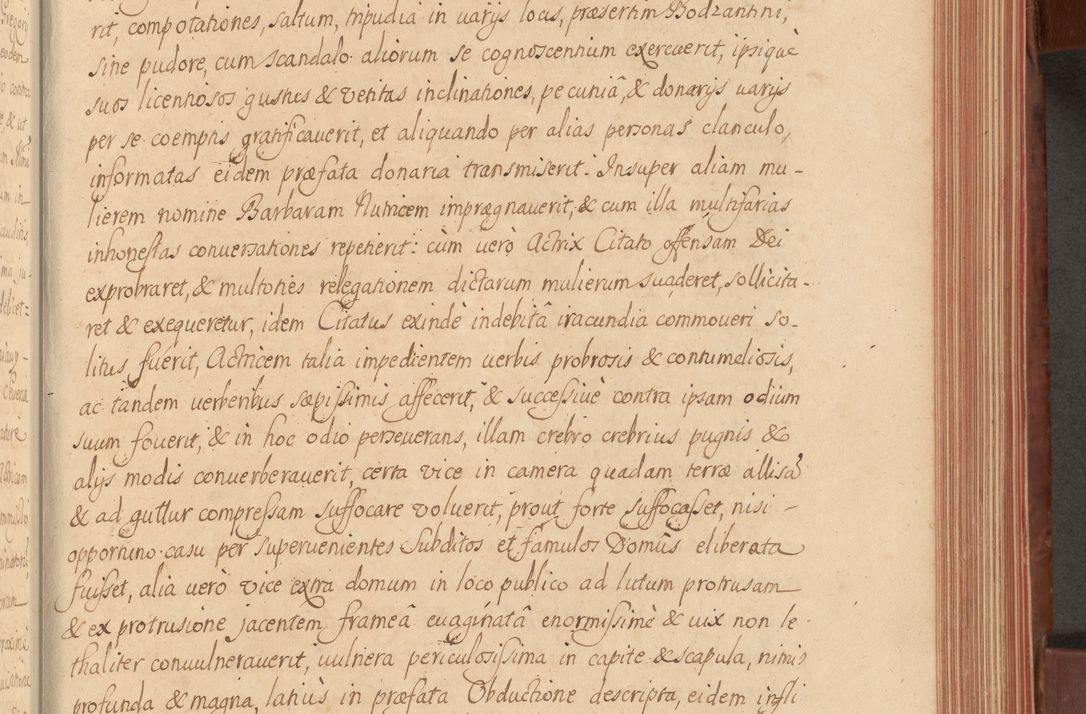 rit, compotationes, saltum, tripudia in varijs locis, præsertim Bodzantini,
sine pudore, cum scandalo aliorum se cognoscentium exercuerit, ipsiquè
suos licentiosos gustus & vetitas inclinationes, pecuniâ, & donarijs varijs
per se coemptis gratificauerit, et aliquando per alias personas clanculo,
informatas eidem præfata donaria transmiserit. Insuper aliam mu-
lierem nomine Barbaram Nutricem imprægnauerit, & cum illa multifarias
inhonestas conuersationes repetierit: cùm uerò Actrix Citato offensam Dei
exprobraret, & multoties relegationem dictarum mulierum suaderet, sollicita-
ret & exequeretur, idem Citatus exindè indebitâ iracundia commoueri so-
litus fuerit, Actricem talia impedientem uerbis probrosis & contumeliosis,
ac tandem uerberibus sæpissimis affecerit, & successiuè contra ipsam odium
suum fouerit, & in hoc odio perseuerans, illam crebro crebrius pugnis &
alijs modis conuerberauerit, certa vice in camera quadam terræ allisã
& ad guttur compressam suffocare voluerit, prout forte suffocasset, nisi -
opportuno casu per superuenientes Subditos et famulos Domûs eliberata
fuisset, alia uerò vice extra domum in loco publico ad lutum protrusam
& ex protrusione jacentem frameâ euaginatâ enormissimè & uix non le-
thaliter conuulnerauerit, uulnera periculosissima in capite & scapula, nimis
profunda & magna, latiùs in præfata Obductione descripta, eidem infli